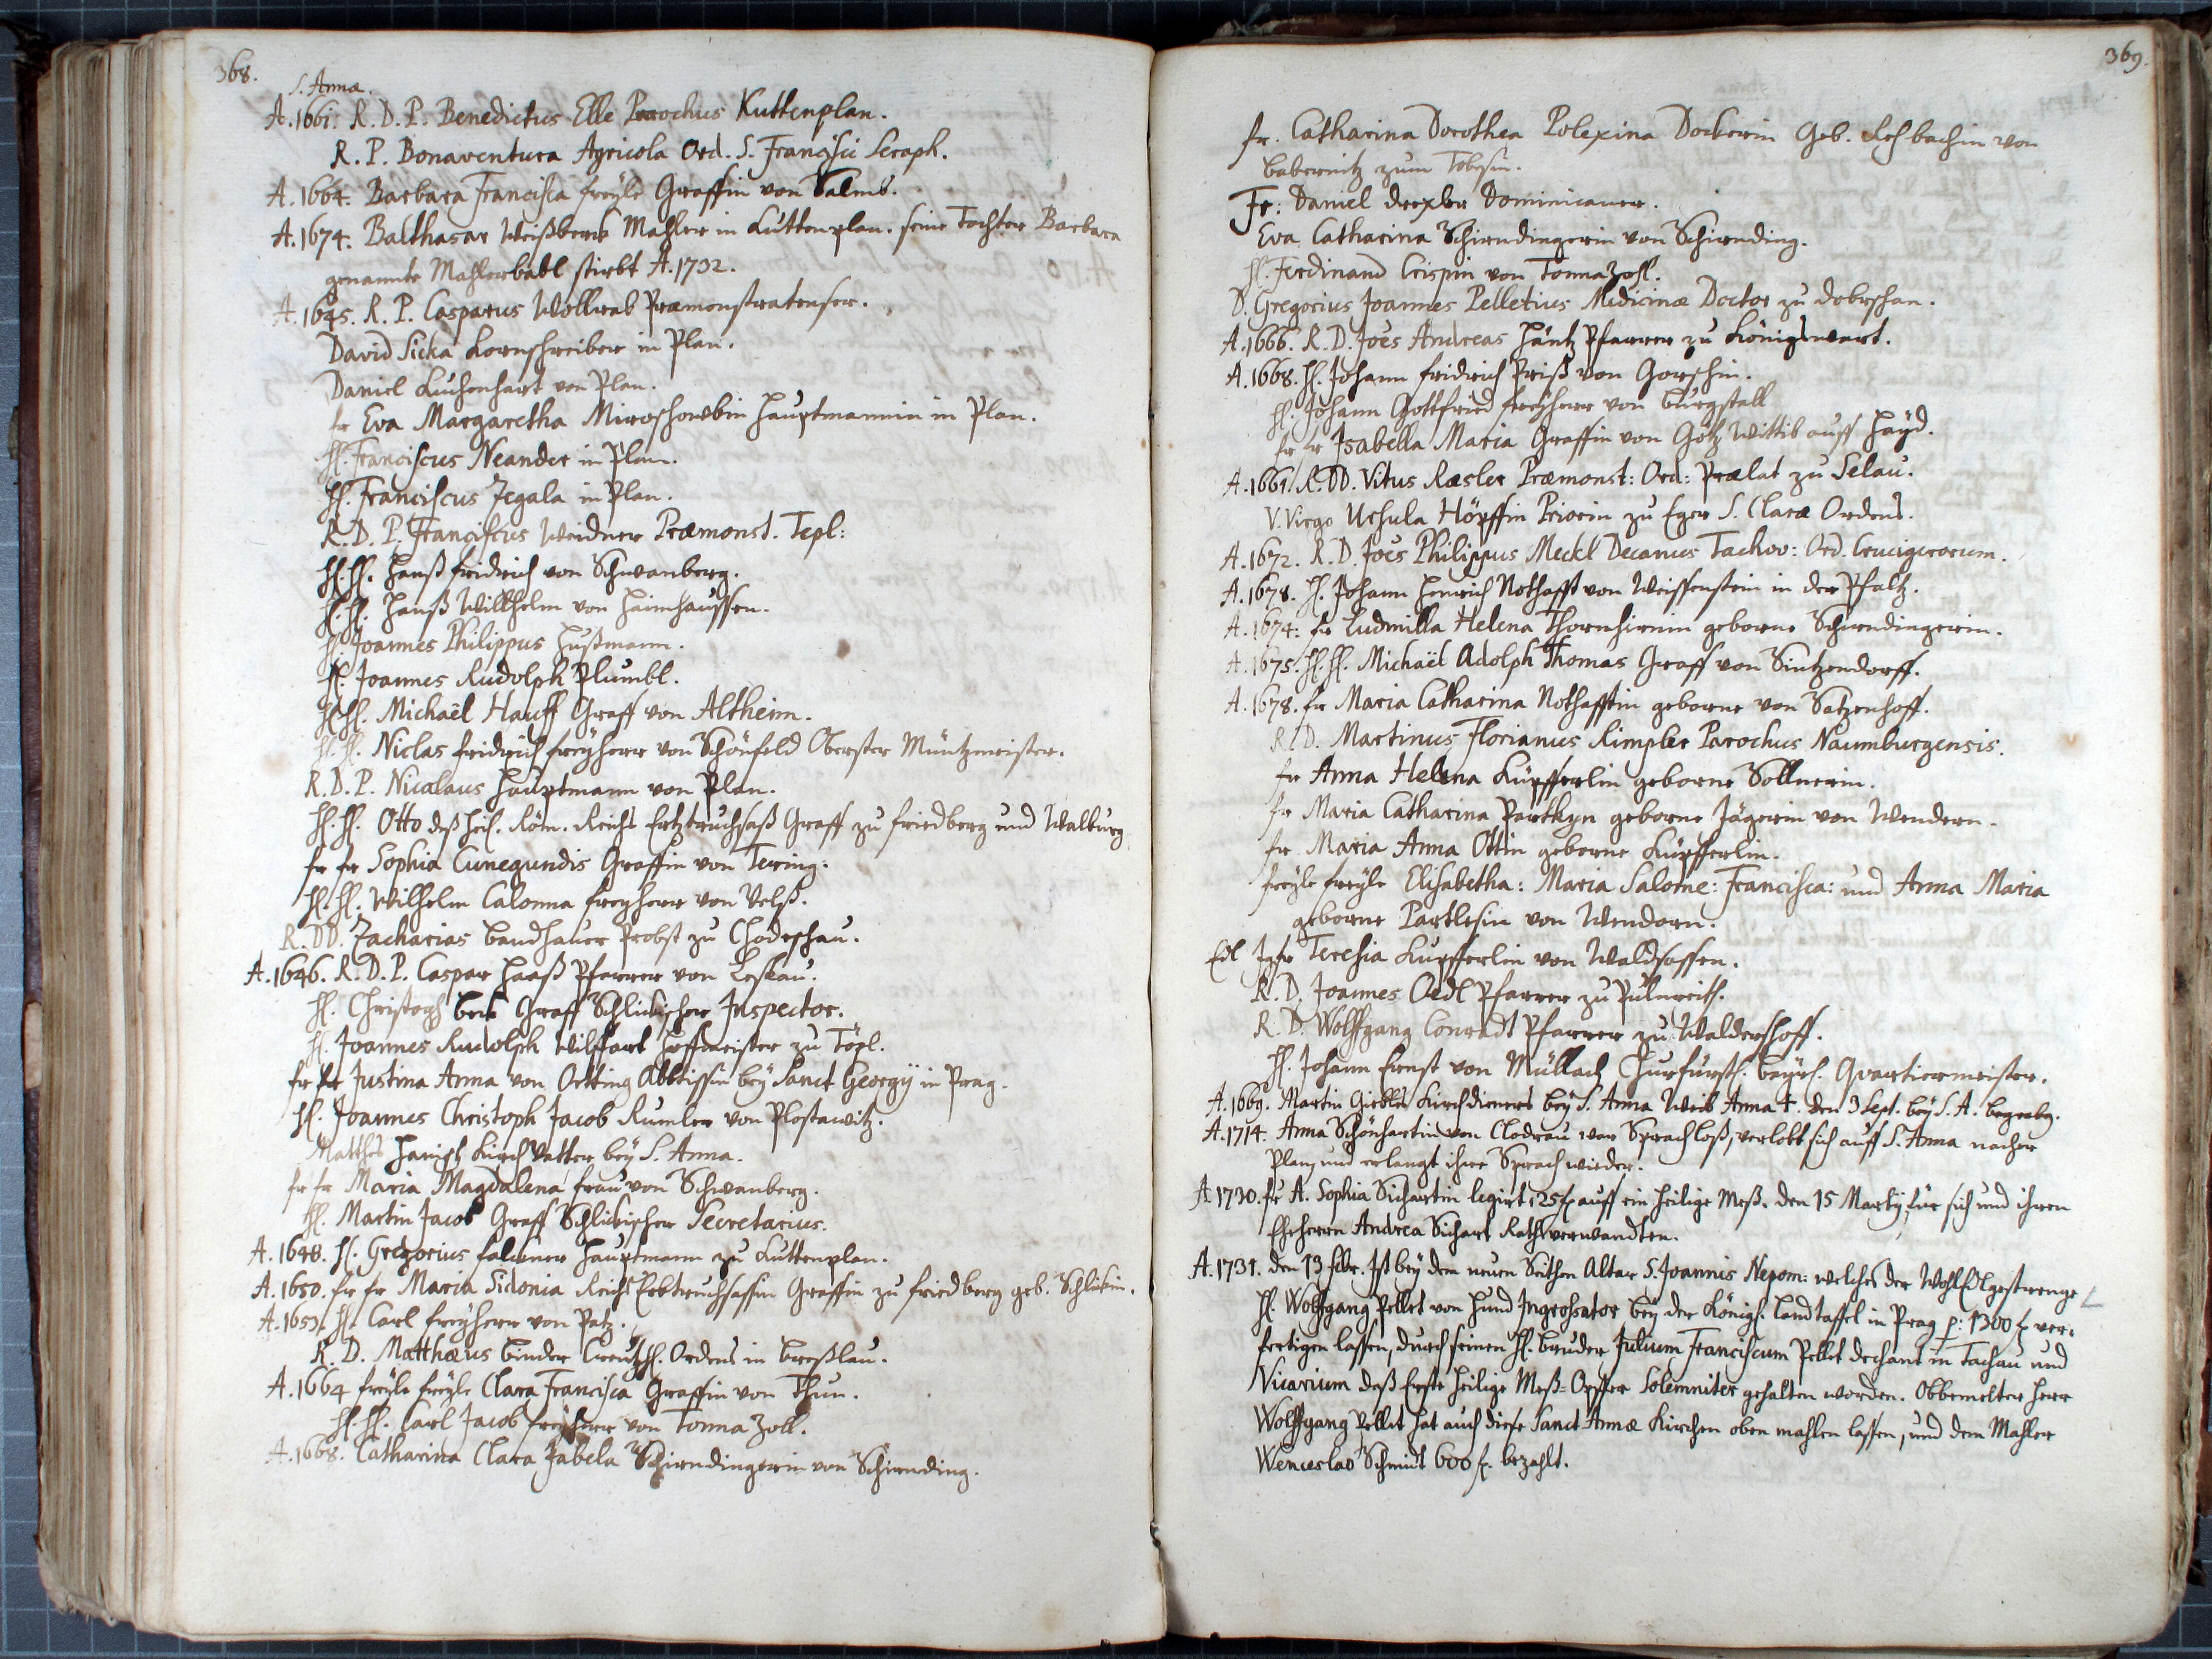 368.
S. Annæ.
A. 1661. R. D. P. Benedictus Elle Parochus Kuttenplan.
R. P. Bonaventura Agricola Ord. S. Francisci Seraph.
A. 1664. Barbara Francisca freÿle Graffin von Salmb.
A. 1674. Balthasar Weißberk Mahler in Kuttenplan. seine Tochter Barbara
genannte Mahlerbabl stirbt A. 1732.
A. 1645. R. P. Casparus Wollrab Præmonstratenser.
David Sicka Kornschreiber in Plan.
Daniel Kuchenhart von Plan.
fr Eva Margaretha Miroschowbin Hauptmannin in Plan.
H. Franciscus Neander in Plan.
H. Franciscus Zegala in Plan.
R. D. P. Franciscus Weidner Præmonst. Tepl:
H. H. Hanß fridrich von Schwanberg.
H. H. Hanß Willhelm von Haimhaussen.
H. Joannes Philippus Hußmann.
H. Joannes Rudolph Plumbl.
H. H. Michaël Hauff Graff von Altheim.
H. H. Niclas fridrich freÿherr von Schönfeld Obrister Müntzmeister.
R. D. P. Nicolaus Hauptmann von Plan.
H. H. Otto deß heil. Röm. Reichs Ertztruchsaß Graff zu friedberg und Walburg
fr fr Sophia Cunegundis Graffin von Tering.
H. H. Wilhelm Calonna freyherr von Velß.
R. DD. Zacharias Bandhauer Probst zu Chodeschau.
A. 1646. R. D. P. Caspar Haaß Pfarrer von Leskau.
H. Christoph Berk Graff Schlickischer Inspector.
H. Joannes Rudolph Wilffart Hoffmeister zu Töpl.
fr fr Justina Anna von Oetting Abbtissin beÿ Sanct Georgÿ in Prag.
H. Joannes Christoph Jacob Rumler von Plostawitz.
Matthes Hanisch Kirch Vatter beÿ S. Anna.
fr fr Maria Magdalena frau von Schwanberg.
H. Martin Jacob Graff Schlickischer Secretarius.
A. 1648. H. Gregorius falckner Hauptmann zu Kuttenplan.
A. 1650. fr fr Maria Sidonia Reichs Erbtruchsassin Graffin zu friedberg geb. Schlickin.
A. 1653. H. Carl freÿherr von Patz.
R. D. Matthæus Binder Creutz H. Ordens in Breßlau.
A. 1664 freÿle freÿle Clara Francisca Graffin von Thun.
H. H. Carl Jacob freÿherr von Tonna Zoll.
A. 1668. Catharina Clara Jabela Schirndingerin von Schirnding.
369.
fr. Catharina Dorothea Polexina Dockerin Geb. Rehbachin von
Babernitz zum Tobsin.
Fr: Daniel Drexler Dominicaner.
Eva Catharina Schirndingerin von Schirnding.
H. Ferdinand Crispin von Tonnazohl.
D. Gregorius Joannes Pelletius Medicinæ Doctor zu Dobrschan.
A. 1666. R. D. Joes Andreas Häntz Pfarrer zu Königswart.
A. 1668. H. Johann fridrich Priß von Gorschin.
H. Johann Gottfried freÿherr von Burgstall
fr fr Isabella Maria Graffin von Götz Wittib auff Haÿd.
A. 1661. R. DD. Vitus Ræsler Præmonst: Ord: Prælat zu Selau.
V. Virgo Ursula Höpffin Priorin zu Eger S. Claræ Ordens.
A. 1672. R. D. Joes Philippus Meckl Decanus Tachov: Ord. Crucigerorum.
A. 1678. H. Johann Henrich Nothafft von Weissenstein in der Pfaltz.
A. 1674: fr Ludmilla Helena Thornhirnin geborne Schirndingerin.
A. 1675. H. H. Michaël Adolph Thomas Graff von Sintzendorff.
A. 1678. fr Maria Catharina Nothafftin geborne von Satzenhoff.
R. D. Martinus Florianus Rimpler Parochus Naumburgensis.
fr Anna Helena Küpfferlin geborne Sollnerin.
fr Maria Catharina Partkyn geborne Jägerin von Wendern.
fr Maria Anna Ottin geborne Küpfferlin.
freÿle freÿle Elisabetha: Maria Salome: Francisca: und Anna Maria
geborne Partlesin von Wendorn.
Edl Jgfr Teresia Kupfferlin von Waldsassen.
R. D. Joannes Oedl Pfarrer zu Pulnreith.
R. D. Wolffgang Conradt Pfarrer zu Waldershoff.
H. Johann Ernst von Müllach Churfürstl. Beÿrl. Quartiermeister.
A. 1669. Martin Girbler Kirchdieners beÿ S. Anna Weib Anna †. den 3 Sept. beÿ S. A. begrabn.
A. 1714. Anna Schönhartin von Clodrau war Sprachloß, verlobt sich auff S. Anna nacher
Plan, und erlangt ihre Sprach wieder.
A. 1730. fr A. Sophia Sichartin legirt 125 f auff ein heilige Meß. den 15 Martÿ für sich und ihren
Eheherrn Andrea Sichart Rathsverwandten.
A. 1731. den 13 febr. Ist beÿ dem neuen Seithen Altar S. Joannis Nepom: welches der WohlEdlgestrenge
H. Wolffgang Pellet von Hund Ingrossator beÿ der Königl. Landtaffel in Prag p: 1300 f. ver-
fertigen lassen, durch seinen H. Bruder Julium Franciscum Pellet Dechant in Tachau und
Vicarium daß Erste heilige Meß-Opffer Solemniter gehalten worden. Obbemelter Herr
Wolffgang Pellet hat auch diese Sanct Annæ Kirchen oben mahlen lassen, und dem Mahler
Wenceslao Schmidt 600 f. bezahlt.